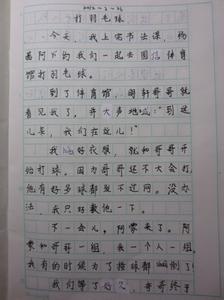 打羽毛球
今天，我上完书法课，杨
阿下的我们一起去国信体育
馆打羽毛球。
到了体育馆，明轩哥哥就
看见我了，并大声地喊：“到这
儿来，我们在这儿！”
我 好衣服，就和哥哥开
始打球。因为哥哥还不太会打，
他有好多球都发不过网。没办
法，我只好教他一下。
不一会儿，阿 来了。阿
和哥哥一组，我一个人一组，
我有的时候为了接球都 倒了！
我们等了好久，哥哥终于